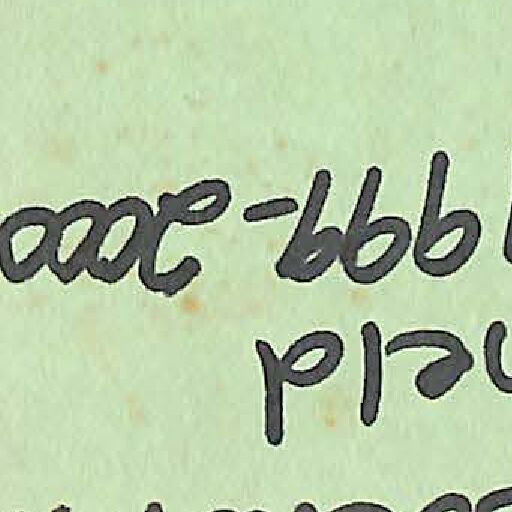 held
1999-2000